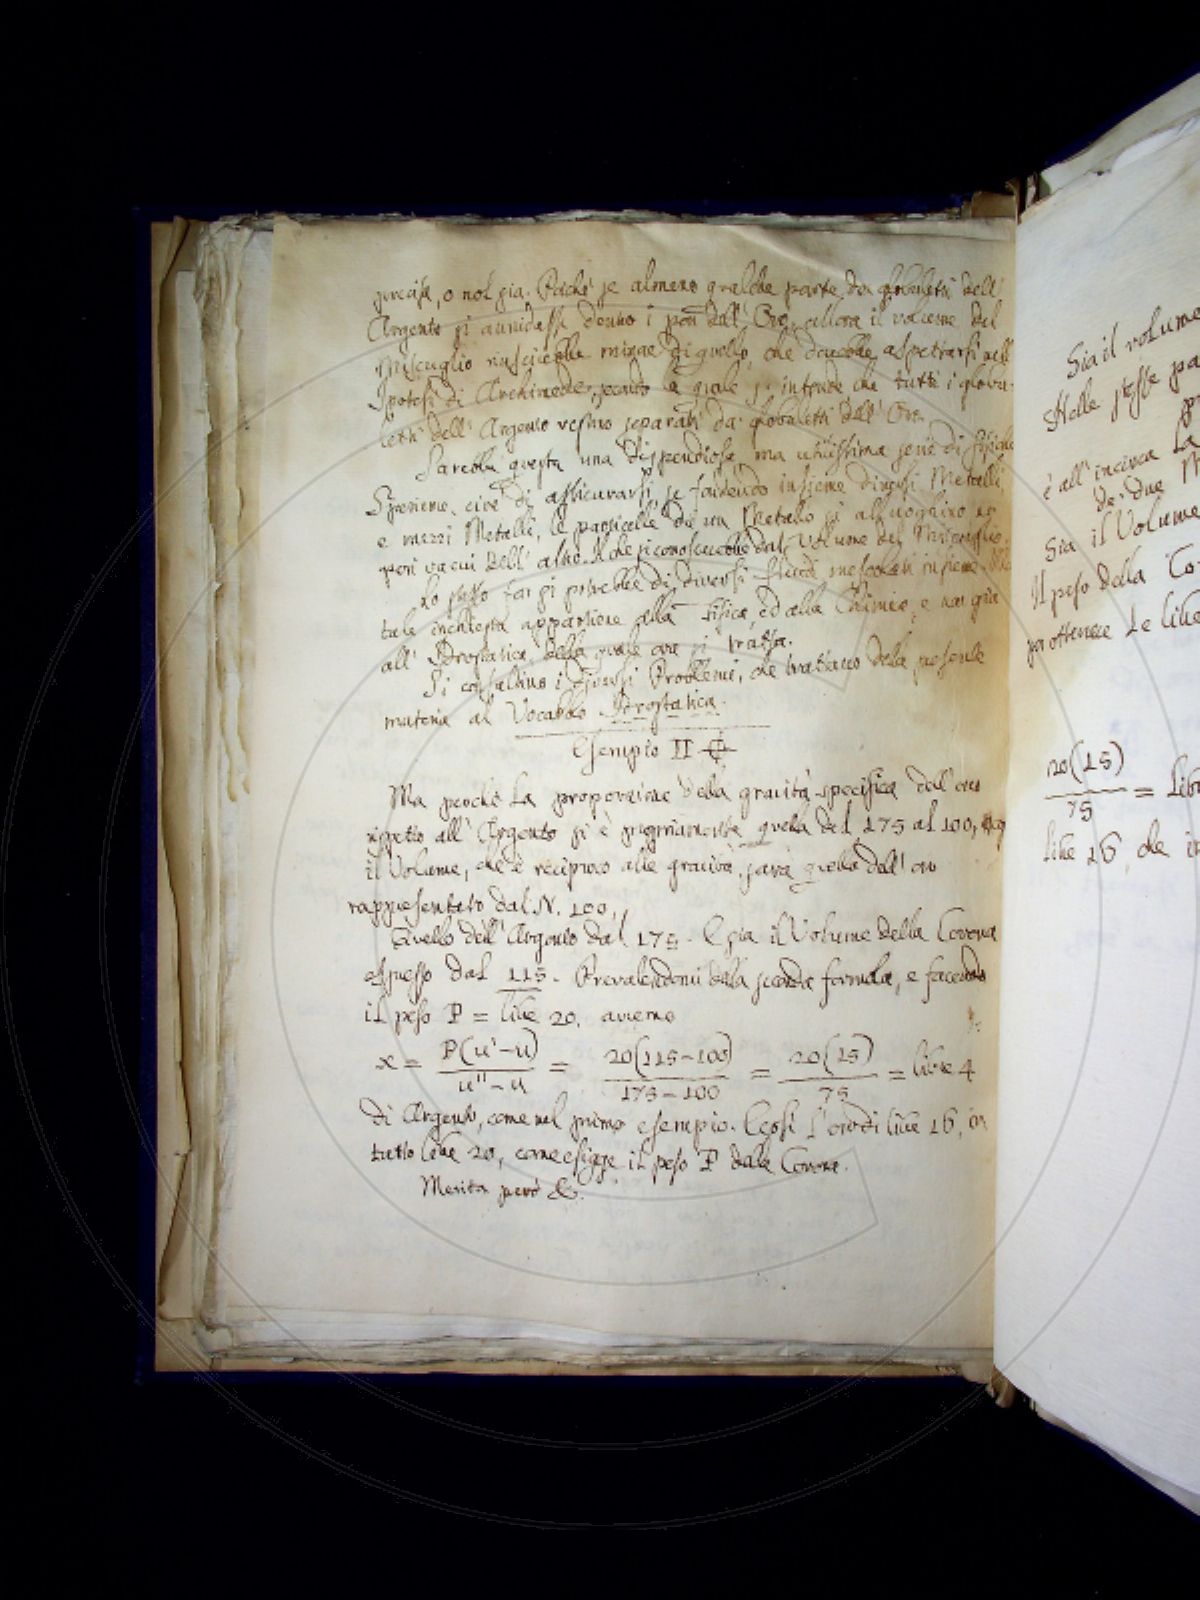 precisa, o nol sia. Perchè se almeno qualche parte de' globuletti dell'
Argento si annidasse dentro i pori dell' Oro, allora il volume del
Miscuglio riuscirebbe minore di quello, che dovrebbe aspettarsi nell'
Ipotesi di Archimede, secondo la quale s'intende che tutti i globu-
letti dell' Argento restino separati da' globuletti dell' Oro.
Sarebbe questa una dispendiosa, ma utilissima serie di Fisiche
Sperienze, cioè di assicurarsi se fondendo insieme diversi Metalli,
e mezzi Metalli, le particelle di un Metallo si alluoghino ne'
pori vacui dell' altro. Il che si conoscerebbe dal Volume del Miscuglio.
Lo stesso far si potrebbe di diversi fluidi mescolati insieme. Ma
tale inchiesta appartiene alla Fisica, ed alla Chimica, e non già
all' Idrostatica, della quale ora si tratta.
Si consultino i diversi Problemi, che trattano della presente
materia al Vocabolo Idrostatica.
Esempio II
Ma perchè la proporzione della gravità specifica dell' oro
rispetto all' Argento si è propriamente quella del 175 al 100,
il Volume, che è reciproco alle gravità, sarà quello dell' oro
rappresentato dal N. 100,
Quello dell' Argento dal 175. E sia il Volume della Corona
espresso dal 115. Prevalendomi della seconda formola, e facendo
il peso P = libre 20, avremo
x = P(u' - u) / u'' - u = 20(115 - 100) / 175 - 100 = 20(15) / 75 = libre 4
di Argento, come nel primo esempio. Così l'oro di libre 16, in
tutto libre 20, come esigge il peso P della Corona.
Merita però &c.
Sia il volume
Nelle stesse pa
è all' incirca la
de' due M
Sia il Volume
Il peso della Co
per ottenere le libre
20(15) / 75 = libr
libre 16, che in